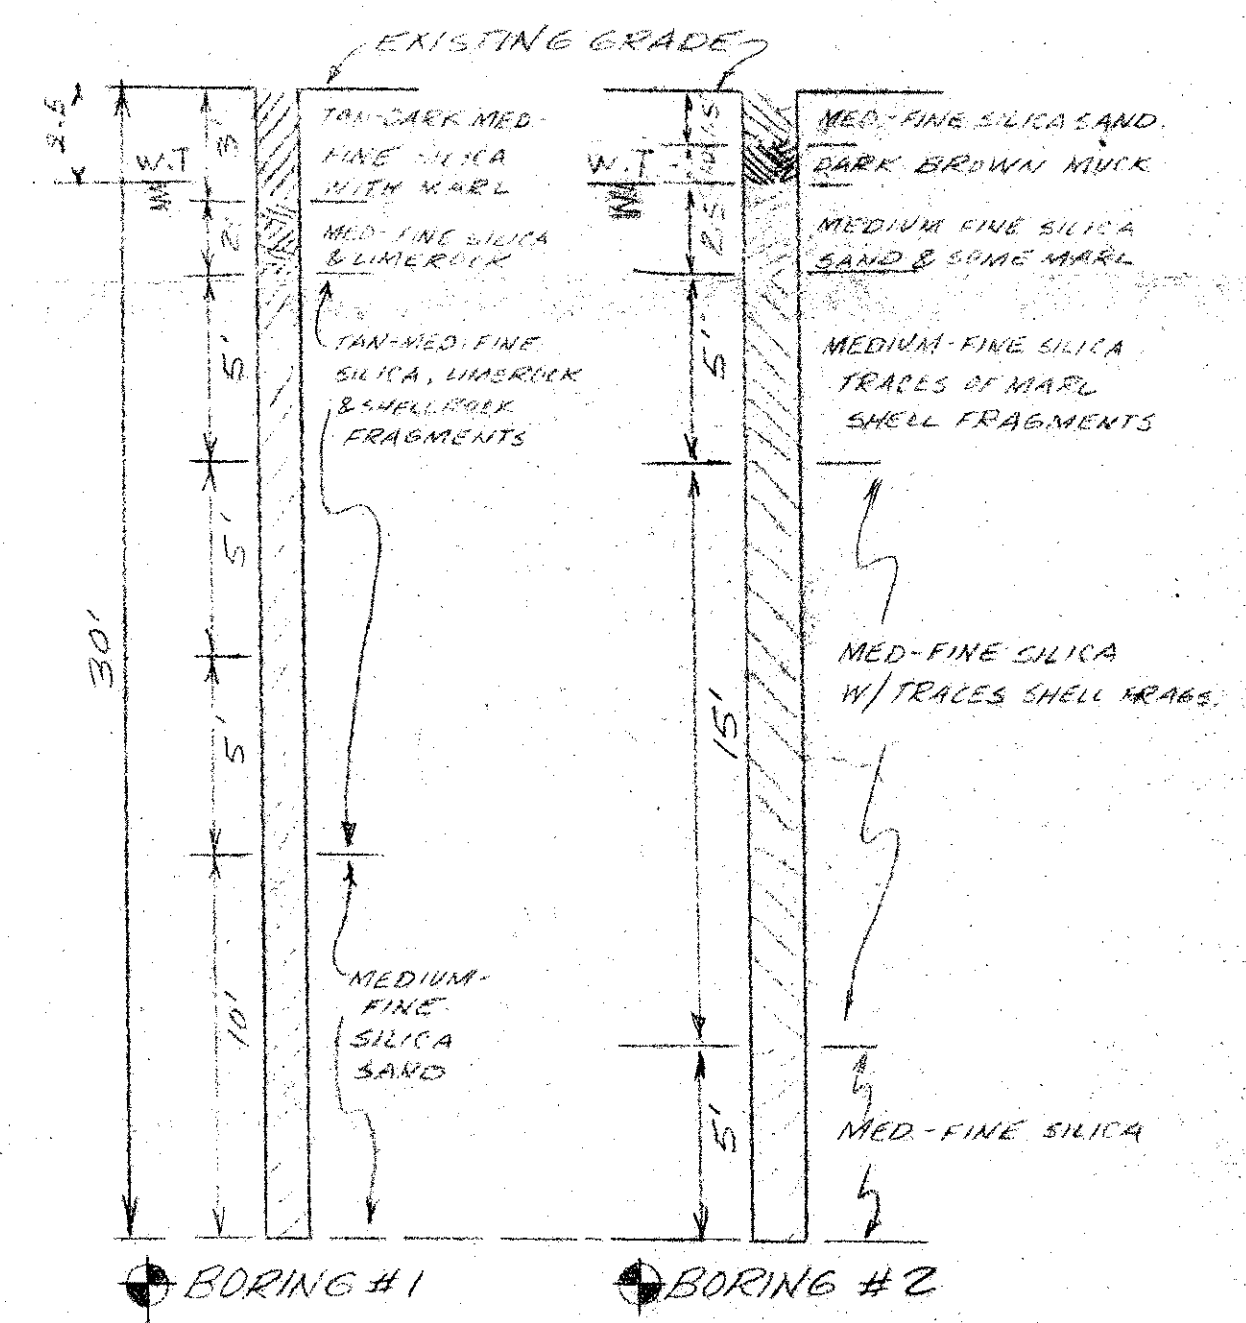 EXISTING GRADE
2.5
W.T
3'
2'
5'
5'
5'
10'
30'
TAN-DARK MED-
FINE SILICA
WITH MARL
MED-FINE SILICA
& LIMEROCK
TAN-MED. FINE
SILICA, LIMEROCK
& SHELLROCK
FRAGMENTS
MEDIUM-
FINE
SILICA
SAND
BORING #1
W.T.
1.5'
2.5'
5'
15'
5'
MED.-FINE SILICA SAND.
DARK BROWN MUCK
MEDIUM FINE SILICA
SAND & SOME MARL
MEDIUM-FINE SILICA
TRACES OF MARL
SHELL FRAGMENTS
MED-FINE SILICA
W/TRACES SHELL FRAGS.
MED.-FINE SILICA
BORING #2